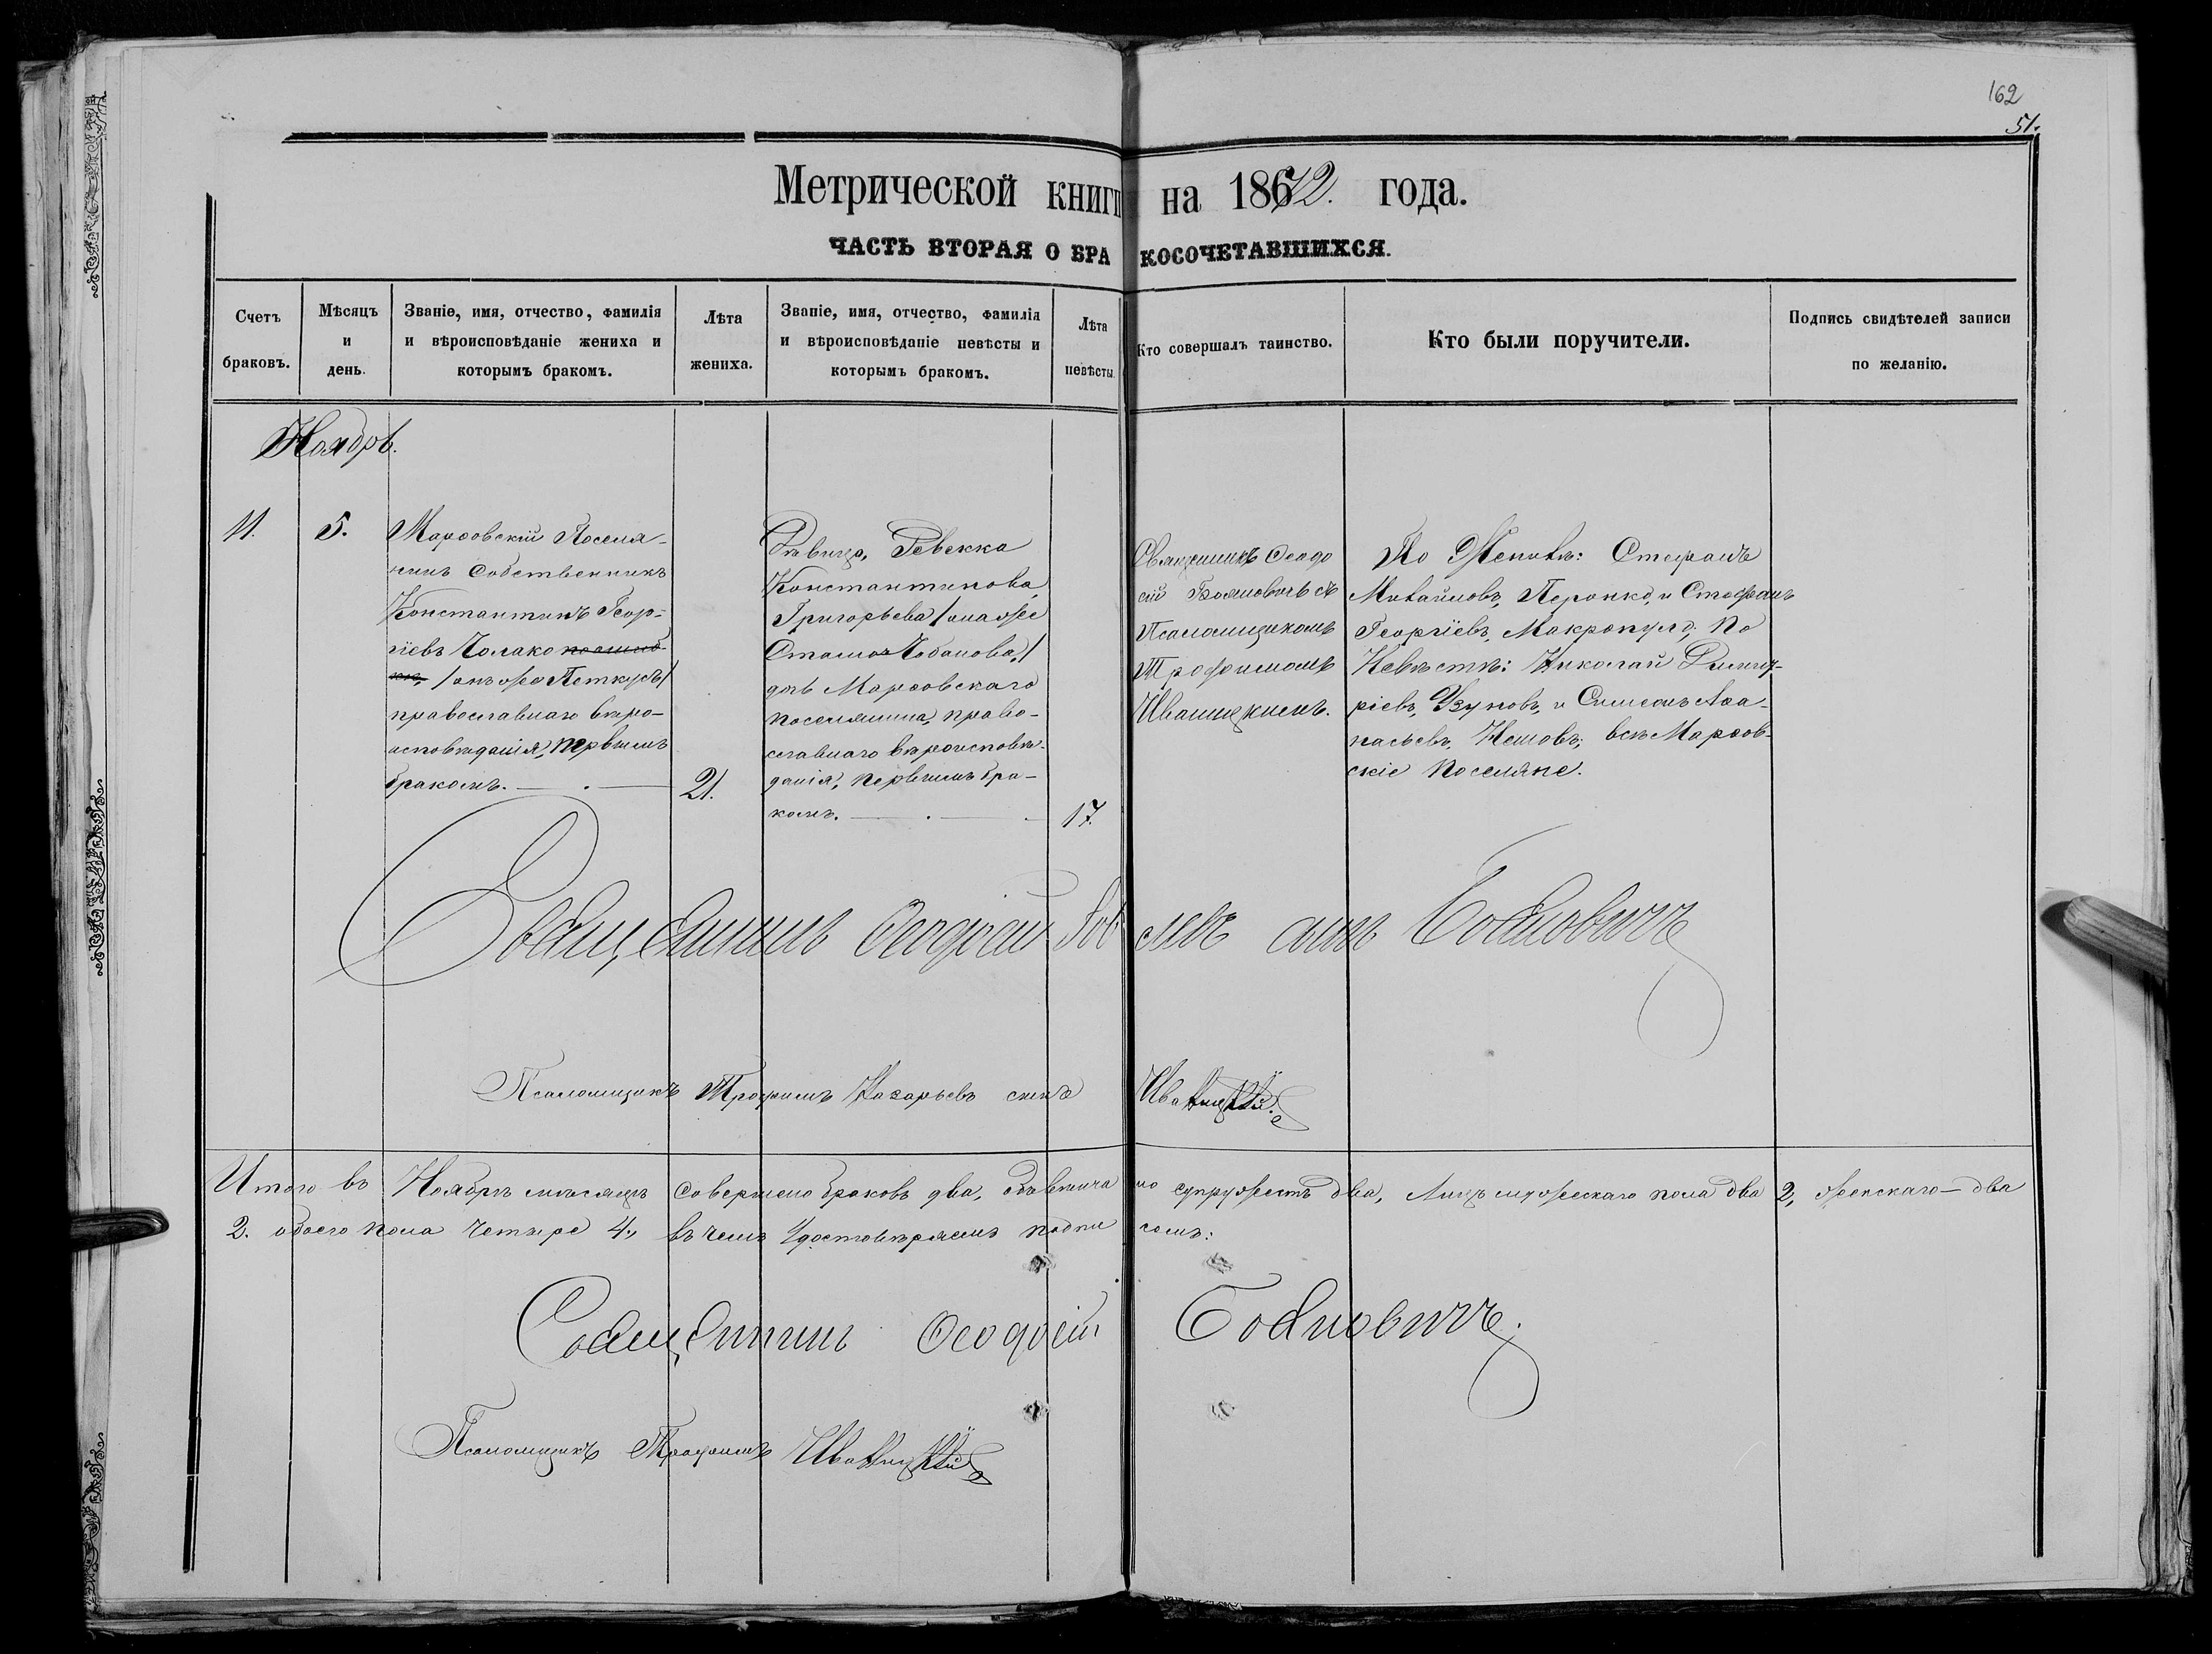 162
51.
Метрической книги на 1872. года.
ЧАСТЬ ВТОРАЯ О БРАКОСОЧЕТАВШИХСЯ.
Счетъ браковъ.
Мѣсяцъ и день.
Званіе, имя, отчество, фамилія и вѣроисповѣданіе жениха и которымъ бракомъ.
Лѣта жениха.
Званіе, имя, отчество, фамилія и вѣроисповѣданіе невѣсты и которымъ бракомъ.
Лѣта невѣсты.
Кто совершалъ таинство.
Кто были поручители.
Подпись свидѣтелей записи по желанію.
Ноябрь.
11.
5.
Марсовскій Поселя-
нинъ Собственникъ
Константинъ Геор-
гіевъ Чолако
/онъ же Петкуръ/
православнаго вѣро-
исповѣданія, первымъ
бракомъ.
21.
Дѣвица, Ревекка
Константинова,
Григорьева /она же
Стамо Чобанова,/
дочь Марсовскаго
поселянина, право-
славнаго вѣроисповѣ-
данія, первымъ бра-
комъ.
17.
Священникъ Ѳеодо
сій Бояновичъ съ
Псаломщикомъ
Трофимомъ
Иваницкимъ.
По Женихѣ: Стефанъ
Михайловъ, Перонко, и Стефанъ
Георгіевъ, Макропуло; По
Невѣстѣ: Николай Димит-
ріевъ, Узуновъ, и Симеонъ Аѳа-
насьевъ, Нешовъ; всѣ Марсов-
скіе Поселяне.
Священникъ Ѳеодосій сынъ Бояновичъ
Псаломщикъ Трофимъ Назарьевъ сынъ Иваницкій.
Итого въ Ноябрѣ мѣсяцѣ совершено браковъ два, обвѣнчано супружествъ два, Лицъ мужескаго пола два 2, женскаго – два
2. обоего пола четыре 4, въ чемъ Удостовѣряемъ подписомъ:
Священникъ Ѳеодосій Бояновичъ.
Псаломщикъ Трофимъ Иваницкій